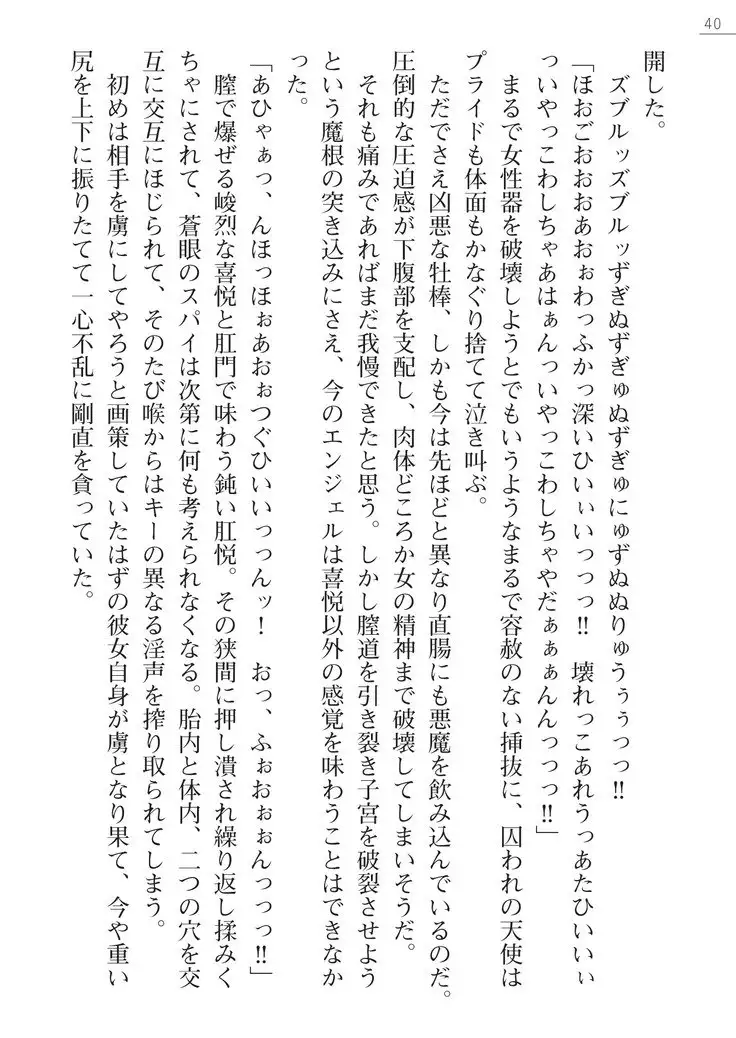 40
開した。
ズブルッズブルッずぎぬずぎゅぬずぎゅにゅずぬぬりゅうぅぅっっ!!
「ほおごおおおあおぉわっふかっ深いひいぃいっっっ!!　壊れっこあれうっあたひいいぃ
っいやっこわしちゃあはぁんっいやっこわしちゃやだぁぁぁんんっっっ!!」
まるで女性器を破壊しようとでもいうようなまるで容赦のない挿抜に、囚われの天使は
プライドも体面もかなぐり捨てて泣き叫ぶ。
ただでさえ凶悪な牡棒、しかも今は先ほどと異なり直腸にも悪魔を飲み込んでいるのだ。
圧倒的な圧迫感が下腹部を支配し、肉体どころか女の精神まで破壊してしまいそうだ。
それも痛みであればまだ我慢できたと思う。しかし膣道を引き裂き子宮を破裂させよう
という魔根の突き込みにさえ、今のエンジェルは喜悦以外の感覚を味わうことはできなか
った。
「あひゃぁっ、んほっほぉあおぉつぐひいいっっんッ！　おっ、ふぉおぉぉんっっっ!!」
膣で爆ぜる峻烈な喜悦と肛門で味わう鈍い肛悦。その狭間に押し潰され繰り返し揉みく
ちゃにされて、蒼眼のスパイは次第に何も考えられなくなる。胎内と体内、二つの穴を交
互に交互にほじられて、そのたび喉からはキーの異なる淫声を搾り取られてしまう。
初めは相手を虜にしてやろうと画策していたはずの彼女自身が虜となり果て、今や重い
尻を上下に振りたてて一心不乱に剛直を貪っていた。